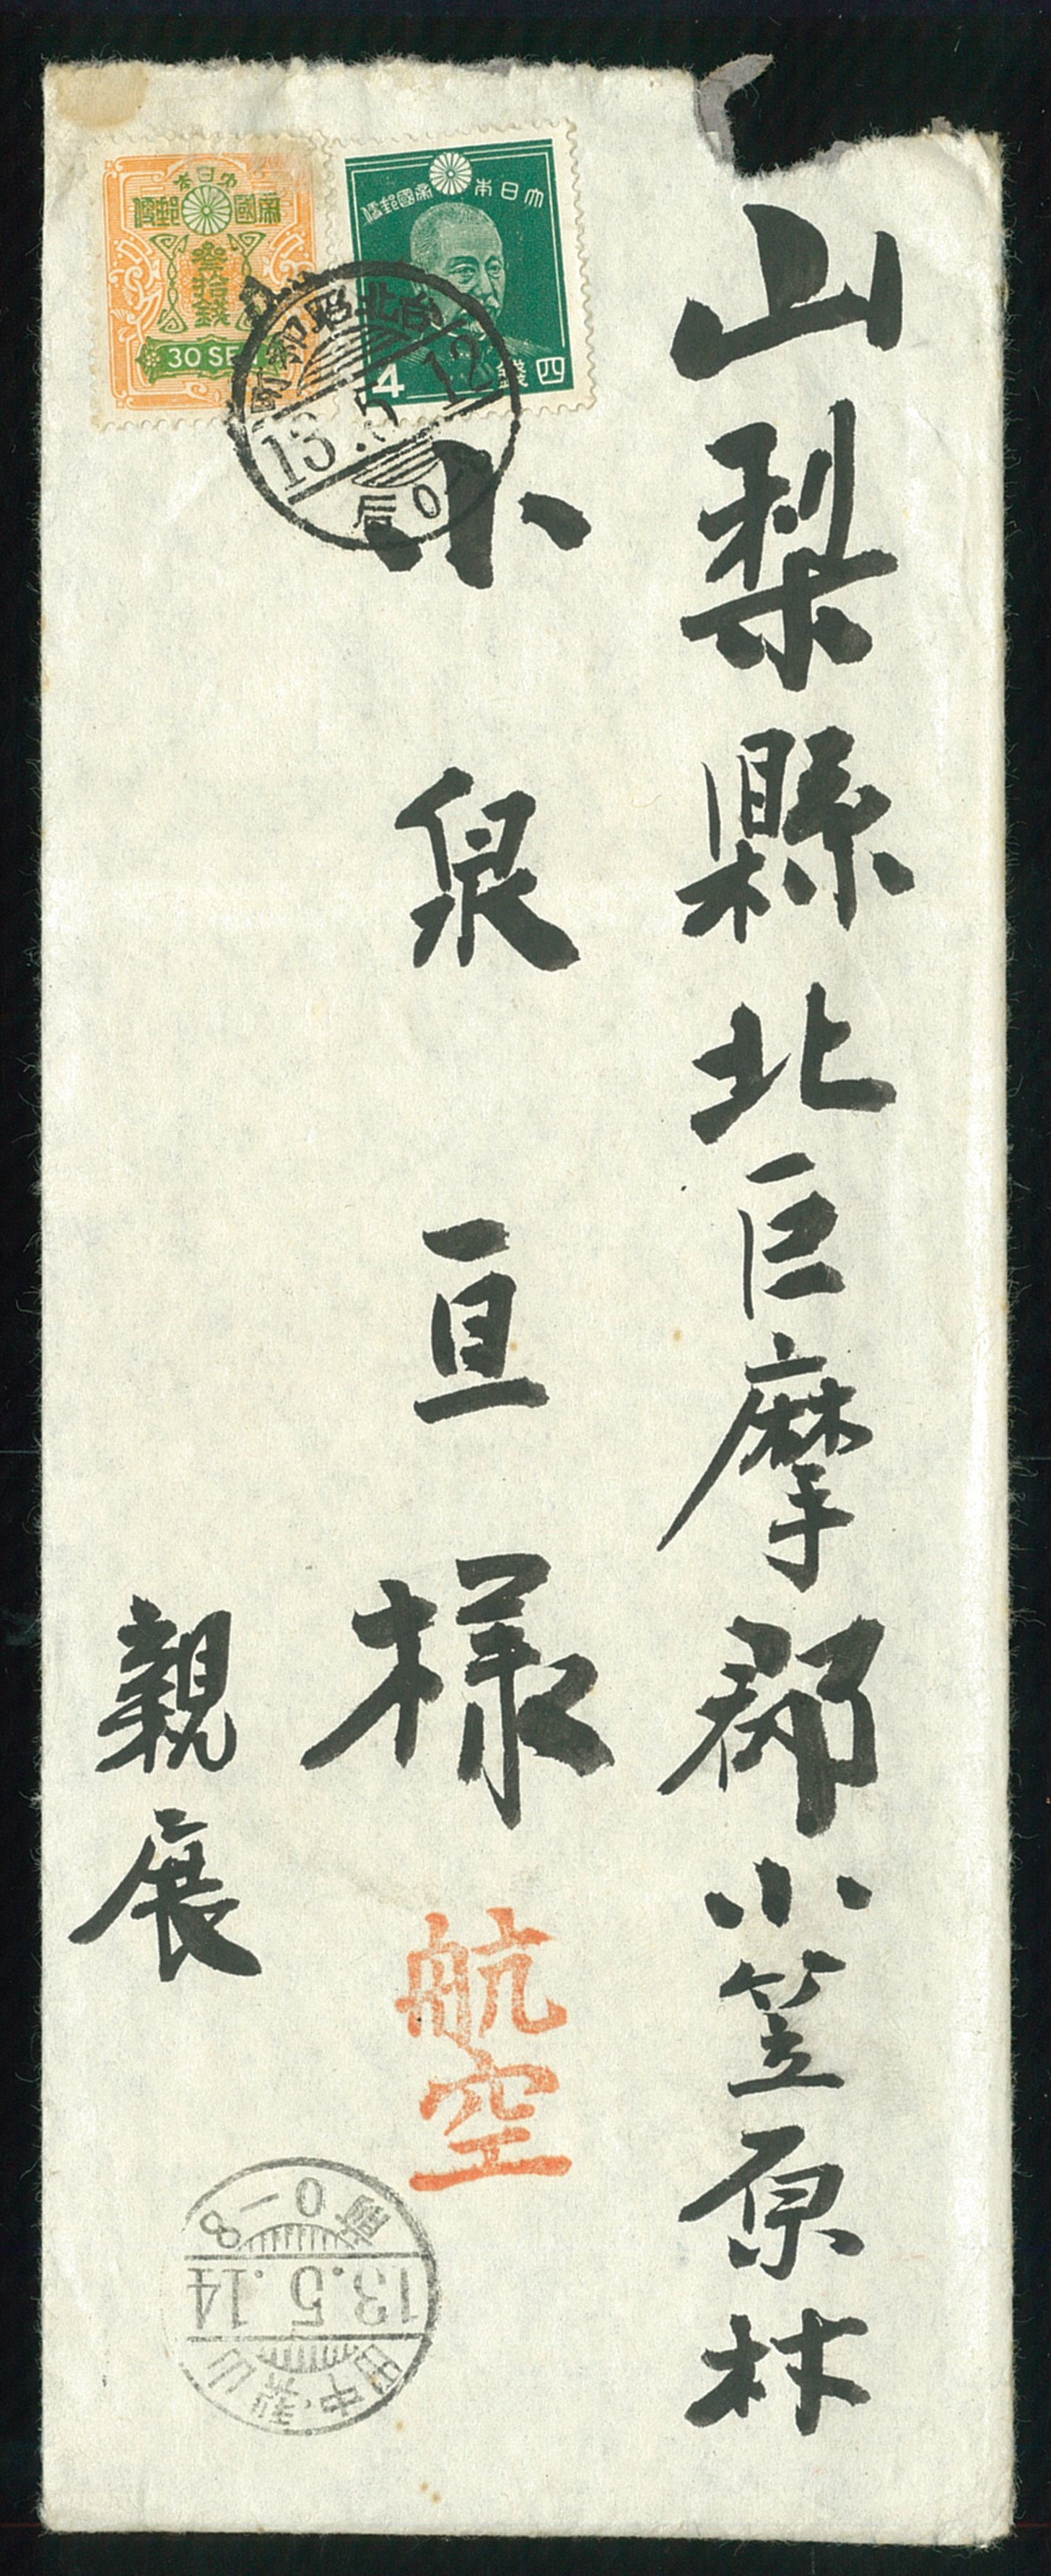 山梨縣北巨摩郡小笠原村
小泉亘様
親展
航空
大日本帝國郵便
四錢
4
大日本
帝國郵便
參拾錢
30 SEN
台北
13.5.12
后 0
山梨.中田
13.5.14
前 0-8